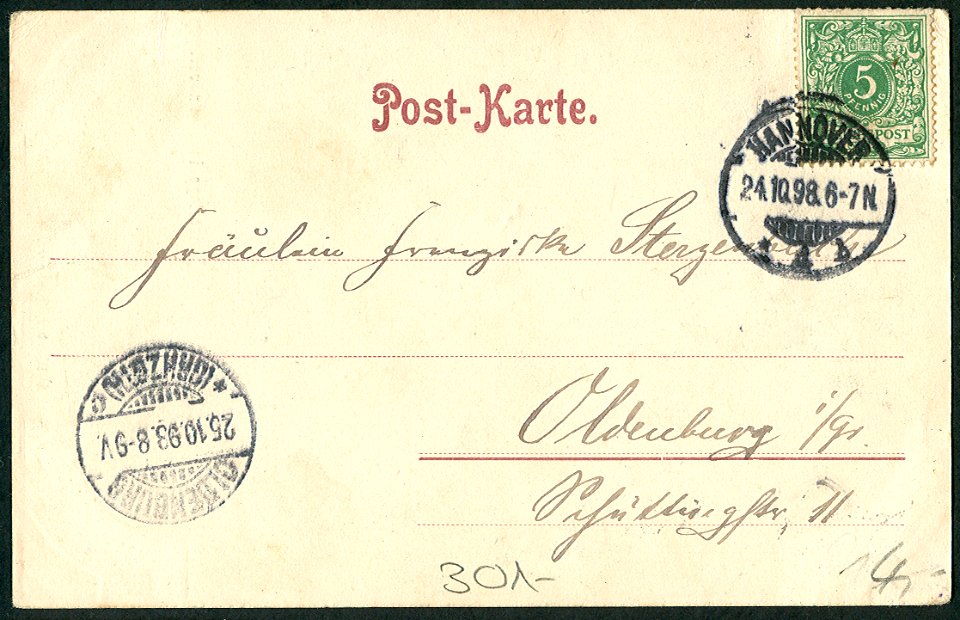 Post-Karte.
5
PFENNIG
POST
HANNOVER
24.10.98.6-7N.
* 1 b
Fräulein Franziska
Oldenburg i/Gr.
Schüttingstr. 11
OLDENBURG
25.10.98.8-9V.
(GRHZGTH)
301-